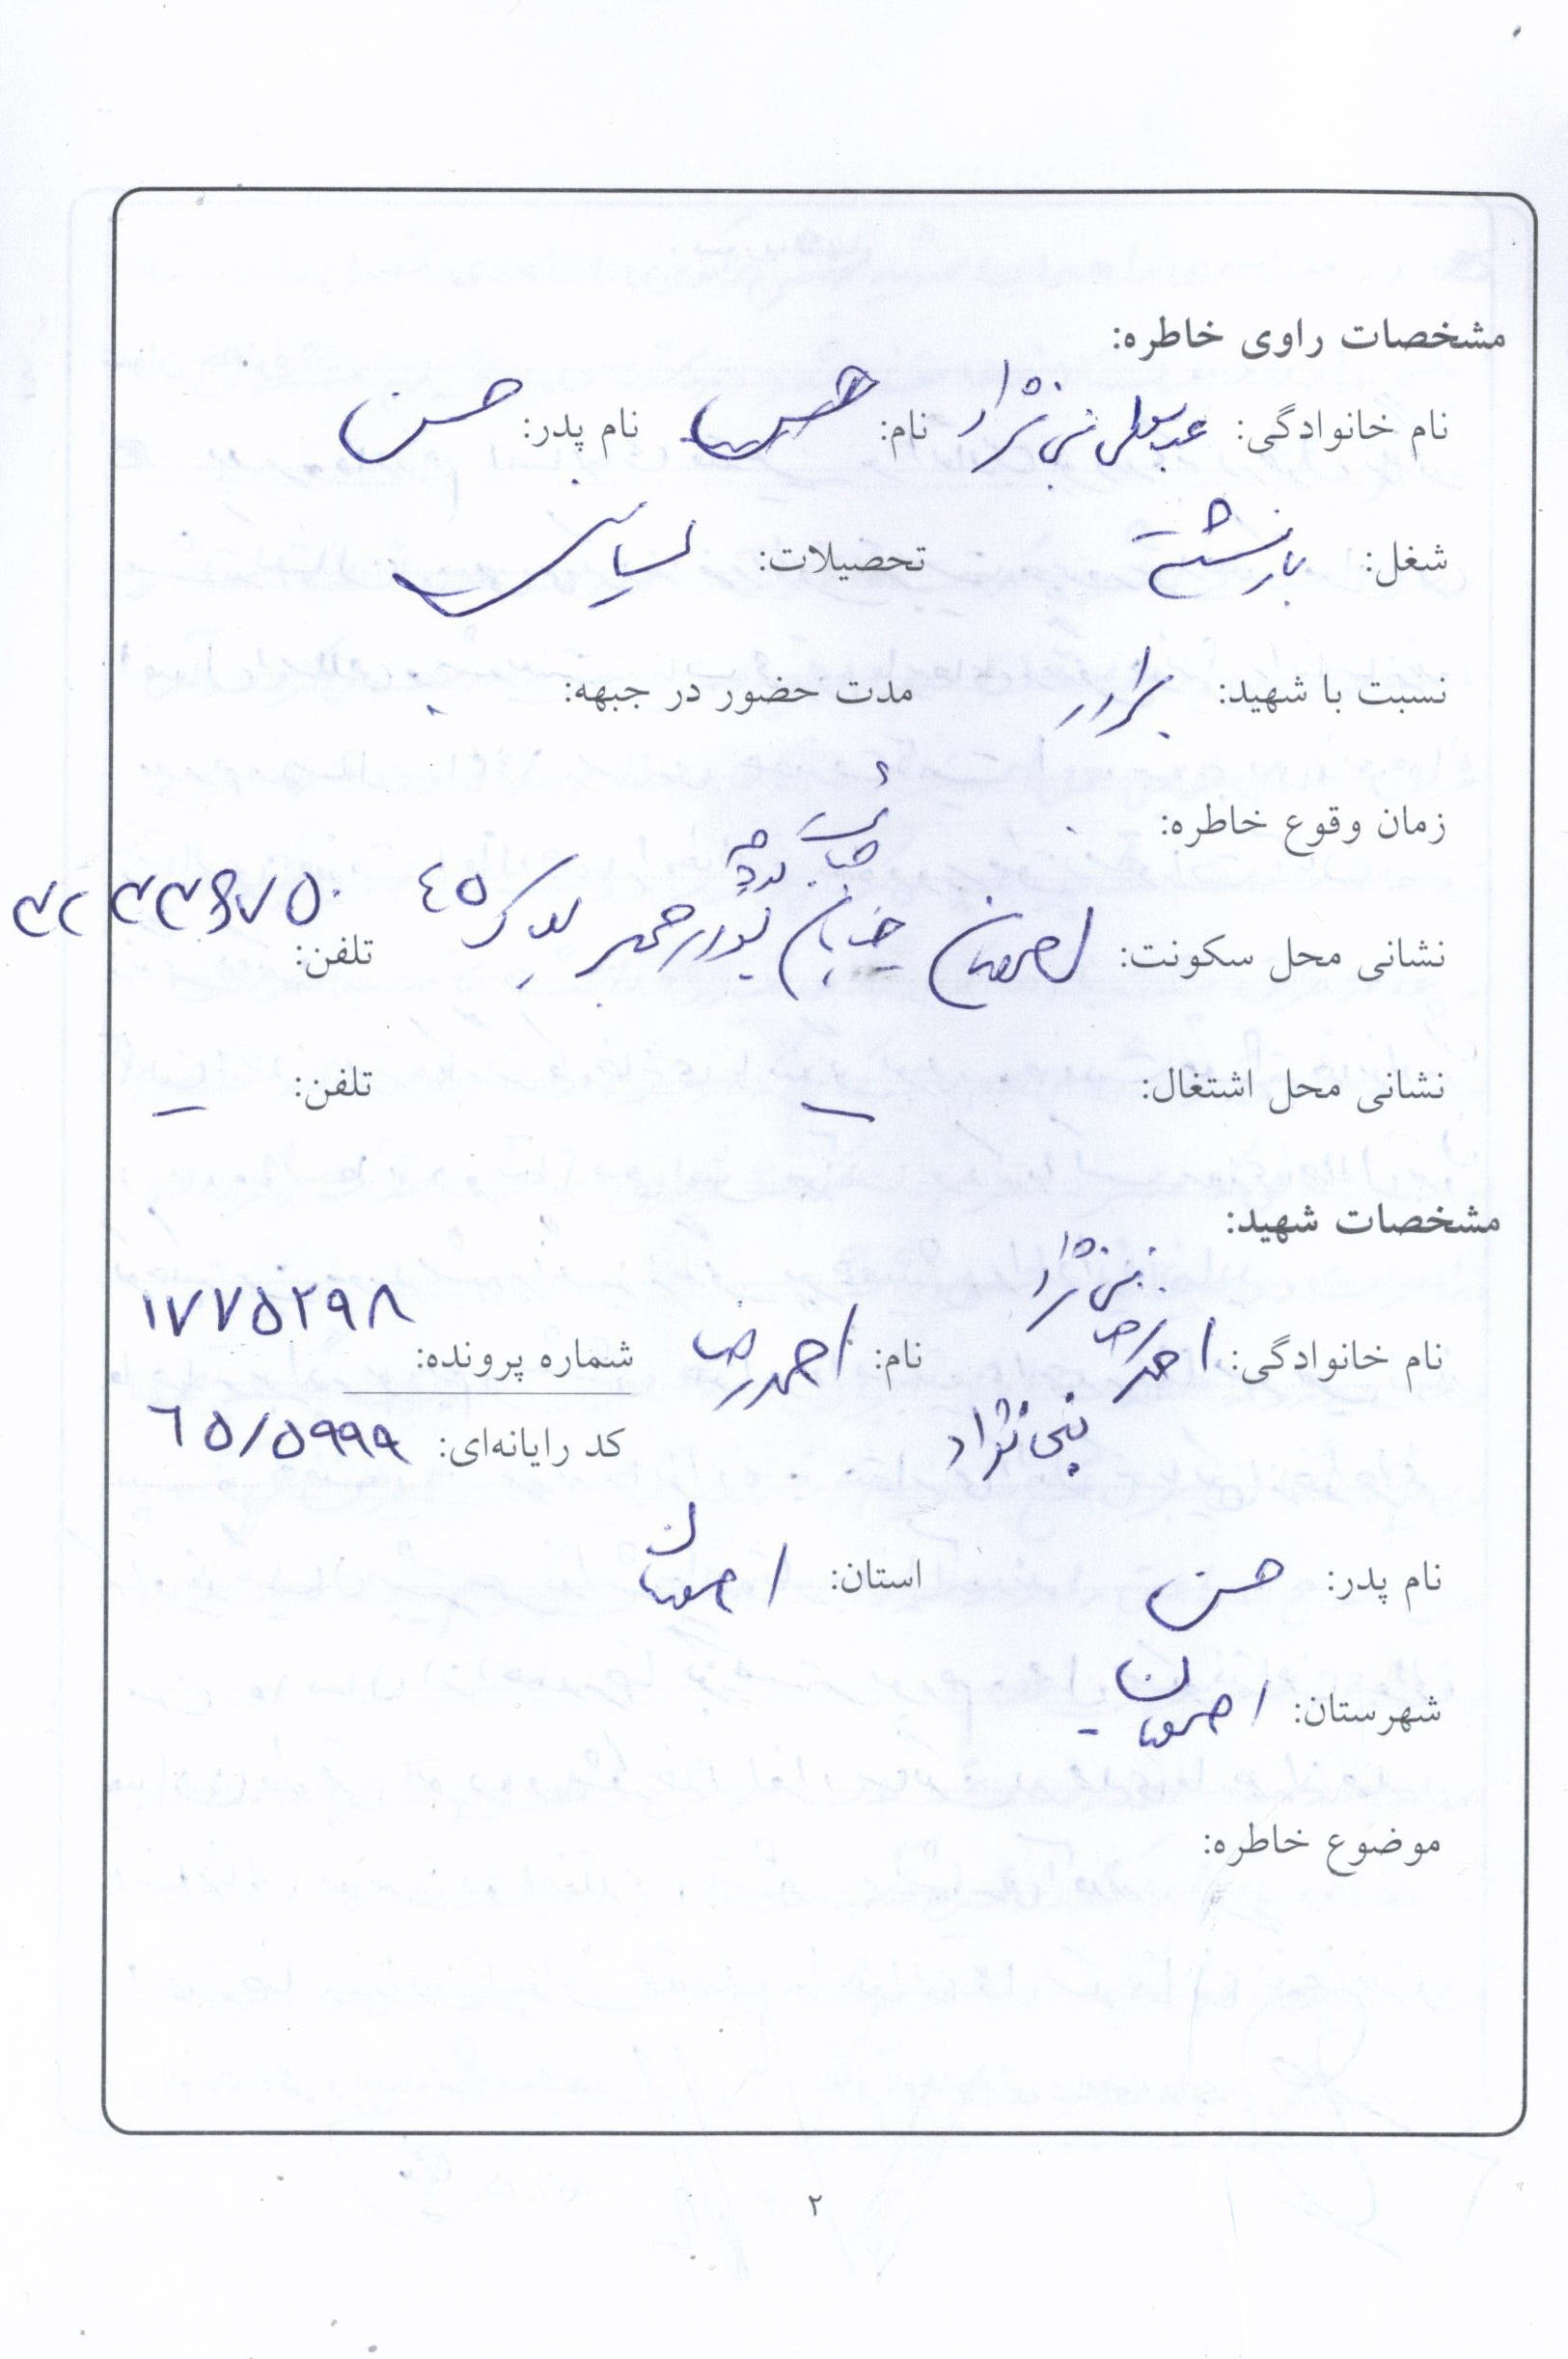 مشخصات راوی خاطره:
نام خانوادگی: نبی نژاد نام: نام پدر: حسن
شغل: بازنشسته تحصیلات: لیسانس
نسبت با شهید: برادر مدت حضور در جبهه:
زمان وقوع خاطره:
نشانی محل سکونت: اصفهان خیابان پلاک ٤٥ تلفن:
نشانی محل اشتغال: ـ تلفن: ـ
مشخصات شهید:
نبی نژاد
نام خانوادگی: احمدرضا نام: احمدرضا شماره پرونده: ۱۷۷۵۲۹۸
نبی نژاد کد رایانه‌ای: ٦٥/٥۹۹۹
نام پدر: حسن استان: اصفهان
شهرستان: اصفهان
موضوع خاطره:
۲